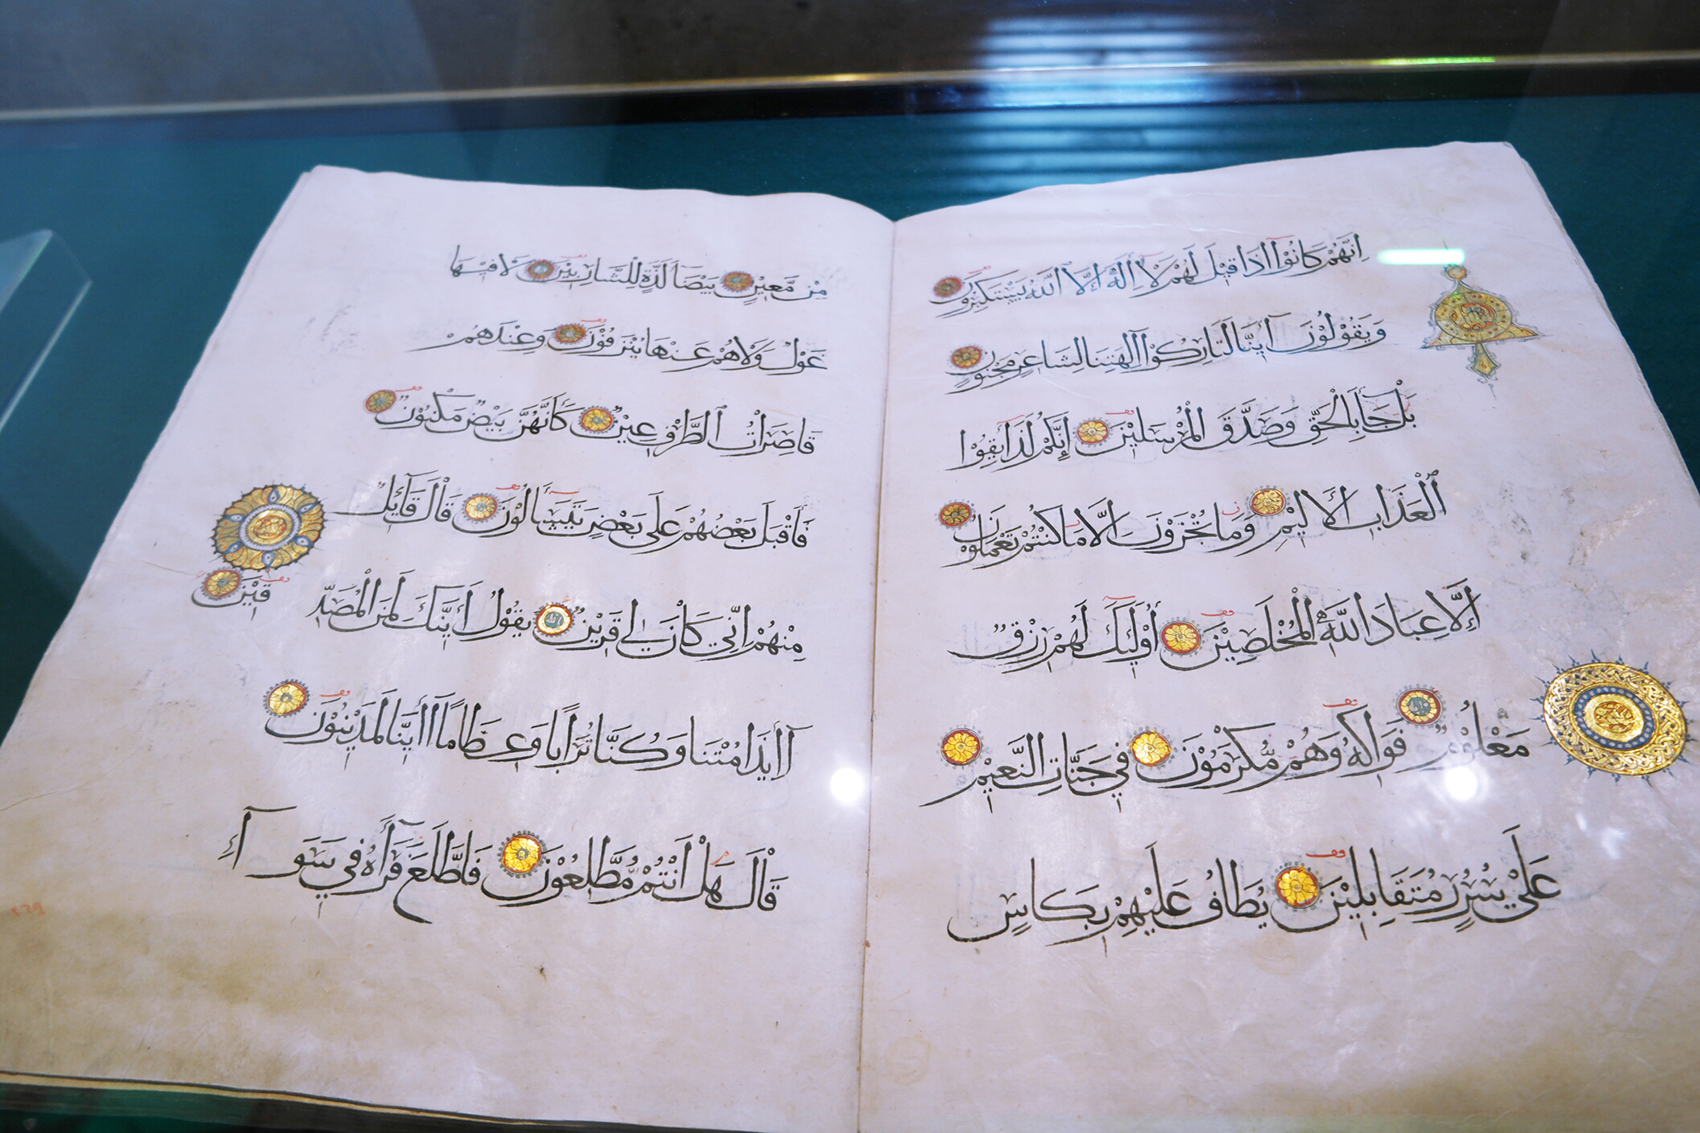 اِنَّهُمْ كَانُوْآ اِذَا قِيْلَ لَهُمْ لَآ اِلٰهَ اِلَّا اللّٰهُ يَسْتَكْبِرُوْنَ
وَيَقُوْلُوْنَ اَئِنَّا لَتَارِكُوْآ اٰلِهَتِنَا لِشَاعِرٍ مَجْنُوْنٍ
بَلْ جَآءَ بِالْحَقِّ وَصَدَّقَ الْمُرْسَلِيْنَ اِنَّكُمْ لَذَآئِقُوْا
الْعَذَابِ الْاَلِيْمِ وَمَا تُجْزَوْنَ اِلَّا مَا كُنْتُمْ تَعْمَلُوْنَ
اِلَّا عِبَادَ اللّٰهِ الْمُخْلَصِيْنَ اُولٰٓئِكَ لَهُمْ رِزْقٌ
مَعْلُوْمٌ فَوَاكِهُ وَهُمْ مُّكْرَمُوْنَ فِيْ جَنَّاتِ النَّعِيْمِ
عَلٰى سُرُرٍ مُتَقَابِلِيْنَ يُطَافُ عَلَيْهِمْ بِكَاْسٍ
مِنْ مَّعِيْنٍ بَيْضَآءَ لَذَّةٍ لِلشَّارِبِيْنَ لَا فِيْهَا
غَوْلٌ وَلَا هُمْ عَنْهَا يُنْزَفُوْنَ وَعِنْدَهُمْ
قَاصِرَاتُ الطَّرْفِ عِيْنٌ كَاَنَّهُنَّ بَيْضٌ مَكْنُوْنٌ
فَاَقْبَلَ بَعْضُهُمْ عَلٰى بَعْضٍ يَتَسَآءَلُوْنَ قَالَ قَآئِلٌ
مِنْهُمْ اِنِّيْ كَانَ لِيْ قَرِيْنٌ يَقُوْلُ اَئِنَّكَ لَمِنَ الْمُصَدِّ
قِيْنَ
ءَاِذَا مِتْنَا وَكُنَّا تُرَابًا وَعِظَامًا ءَاِنَّا لَمَدِيْنُوْنَ
قَالَ هَلْ اَنْتُمْ مُّطَّلِعُوْنَ فَاطَّلَعَ فَرَاٰهُ فِيْ سَوَآءِ